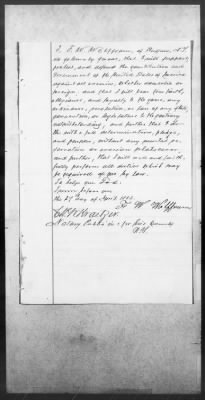 I, F. W. Hoffman, of Pinegrove, N.Y.
do solemnly swear, that I will support,
protect, and defend the constitution and
Government of the United States of America
against all enemies, whether domestic or
foreign, and that I will bear true faith,
allegiance, and loyalty to the same, any
ordinance, resolution, or law of any State,
convention, or Legislature to the contrary
notwithstanding; and further, that I do
this with a full determination, pledge,
and purpose, without any mental re-
servation or evasion whatsoever,
and further, that I will well and faith-
fully perform all duties which may
be required of me by law.
So help me God.
Sworn before me
the 27 day of April 1863
F. W. Hoffman
Notary Public in & for Erie County
N.Y.